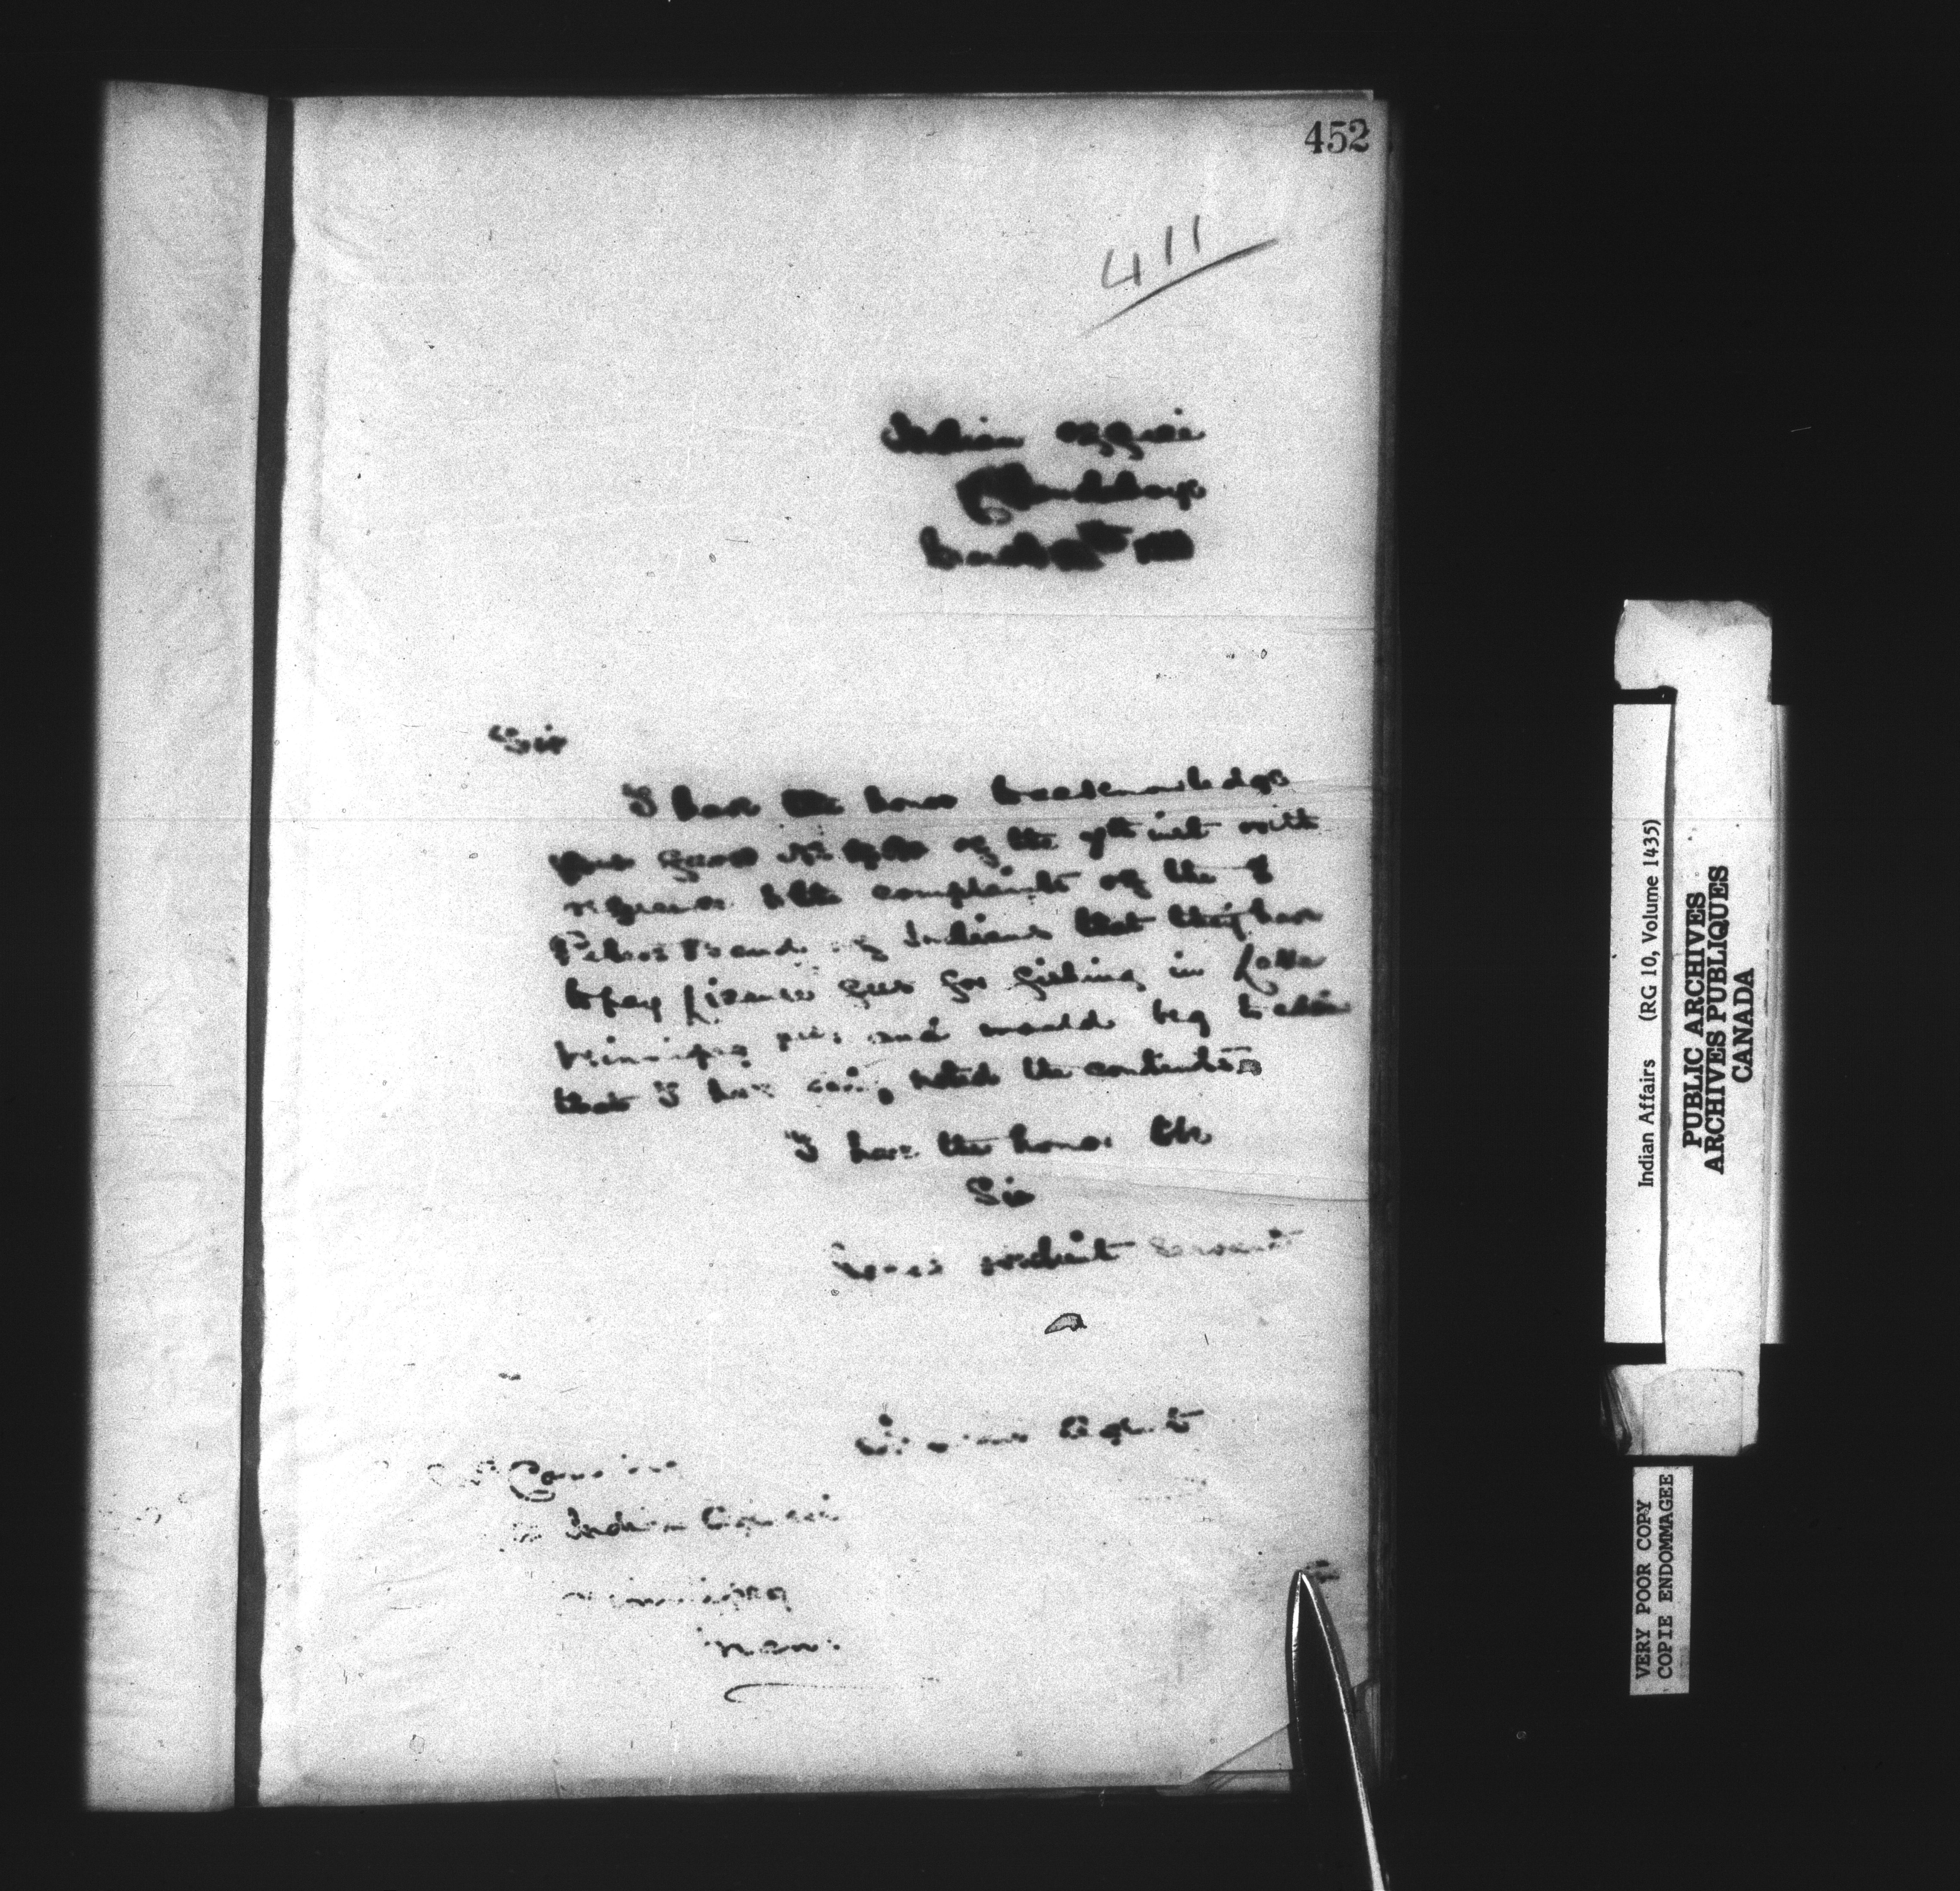 452
411
Indian Office
Clandeboye
Sir
I have the honor to acknowledge
your of the 9th inst with
reference to the complaints of the St
Peters Band of Indians that they have
to pay license fees for fishing in Lake
Winnipeg and would beg to
that I have noted the contents
I have the honor to be
Sir
Your obedient Servant
Indian Agent
Indian
Winnipeg
Man.
Indian Affairs (RG 10, Volume 1435)
PUBLIC ARCHIVES
ARCHIVES PUBLIQUES
CANADA
VERY POOR COPY
COPIE ENDOMMAGEE